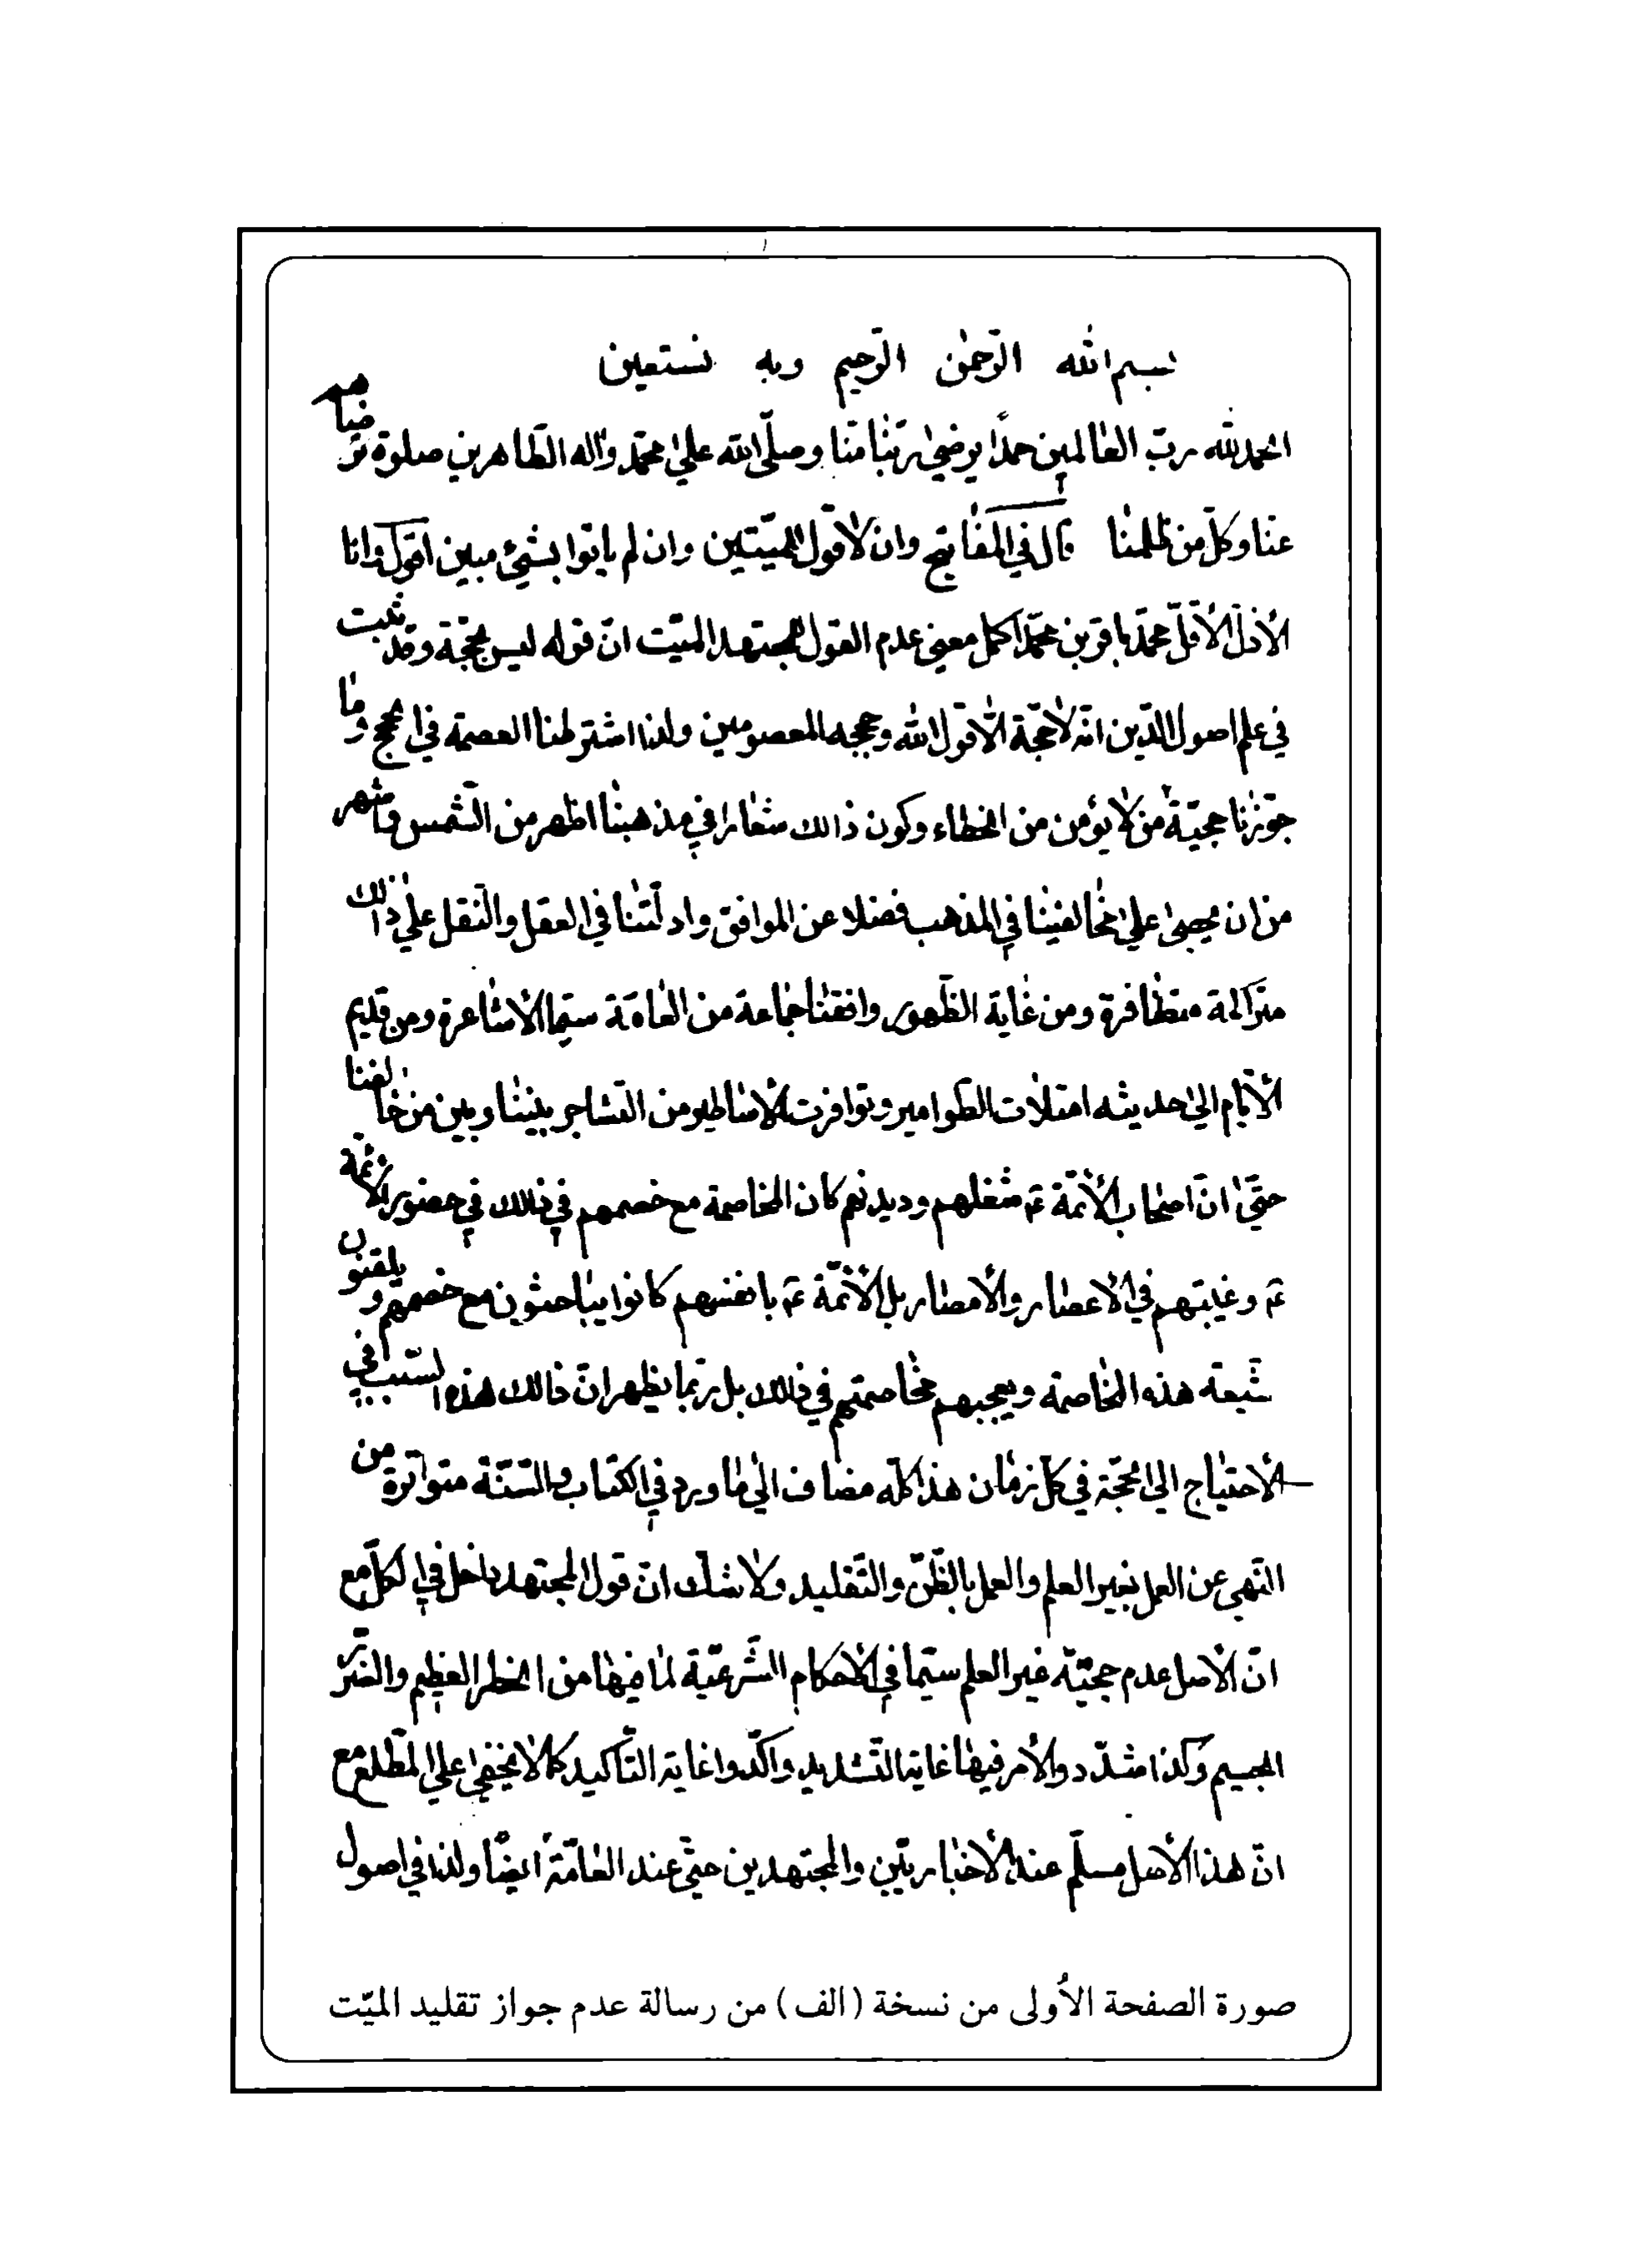 بسم الله الرّحمٰن الرّحيم وبه نستعين
الحمد لله ربّ العٰالمين حمدًا يرضىٰ ربّنٰا منّا وصلّى الله علىٰ محمّد وآله الطّاهرين صلوة ترضيٰهم
عنّا وكلّ من ظلمنٰا قال في المفٰاتيح وان لا قول للميّتين وان لم ياتوا بشيئ مبين اقول وانا
الأذلّ الأقلّ محمّد باقر بن محمّد اكمل معنى عدم القول للمجتهد الميّت انّ قوله ليس بحجّة وقد ثبت
في علم اصول الدّين انّه لاٰ حجّة الّا قول الله وحججه المعصومين ولذا اشترطنا العصمة في الحجج ومٰا
جوّزنٰا حجيّة من لاٰ يؤمن من الخطاء وكون ذالك شعٰارا في مذهبنٰا اظهر من الشّمس واشهر
من ان يخفى علىٰ مخٰالفينٰا في المذهب فضلا عن الموافق وادلّتنٰا في العقل والنّقل علىٰ ذالك
متراكمة متظٰافرة ومن غٰاية الظّهور وافقنٰا جمٰاعة من العٰامّة سيّما الأشٰاعرة ومن قديم
الأيّام الىٰ حديثه امتلأت الطّوامير وتوافرت الأسٰاطير من التّشاجر بيننٰا وبين من خٰالفنا
حتّىٰ انّ اصحٰاب الأئمّة ع شغلهم وديدنهم كان المخاصمة مع خصمهم في ذلك في حضور الأئمّة
ع وغيبتهم في الأعصٰار والأمصٰار بل الأئمّة ع بانفسهم كانوا يبٰاحثون مع خصمهم ويلقنون
شيعة هذه المخٰاصمة ويعجبهم مخٰاصمتهم في ذلك بل ربّما يظهر انّ ذالك هذه السّبب في
الأحتيٰاج الى الحجّة في كلّ زمٰان هذا كلّه مضٰاف الىٰ مٰا ورد في الكتٰاب والسّنّة متواترة من
النّهى عن العمل بغير العلم والعمل بالظّنّ والتّقليد ولاٰ شكّ انّ قول المجتهد داخل في الكلّ مع
انّ الأصل عدم حجيّة غير العلم سيّما في الأحكام الشّرعيّة لمٰا فيهٰا من الخطر العظيم والضّرر
الجسيم وكذا شدّدوا الأمر فيهٰا غاية التّشديد واكّدوا غاية التّأكيد كما لا يخفى على المطّلع مع
انّ هذا الأصل مسلّم عند الأخبٰاريّين والمجتهدين حتّى عند العٰامّة ايضًا ولذا في اصول
صورة الصفحة الأُولى من نسخة (الف) من رسالة عدم جواز تقليد الميّت